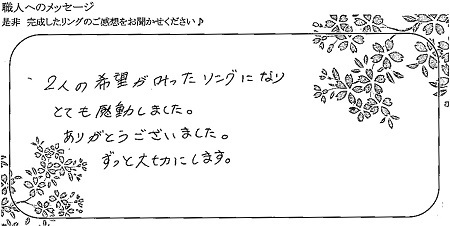 職人へのメッセージ
是非 完成したリングのご感想をお聞かせください♪
2人の希望が叶ったリングになり
とても感動しました。
ありがとうございました。
ずっと大切にします。